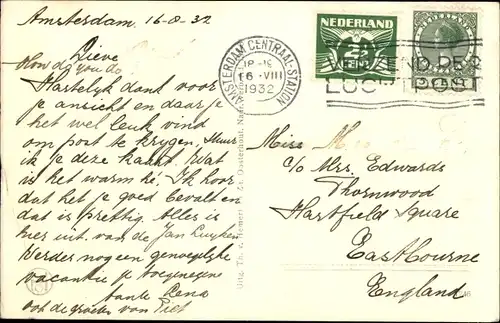 Amsterdam, 16-8-32
Lieve
How do you do
Hartelijk dank voor
je ansicht en daar je
het wel leuk vind
om post te krijgen, stuur
ik je deze kaart. Wat
is het warm hé. Ik hoor
dat het je goed bevalt en
dat is prettig. Alles is
hier uit. van de Jan Luyken
Verder nog een genoegelijke
vacantie je toegenegene
tante Lena
ook de groeten van Piet
AMSTERDAM CENTRAAL-STATION
16 VIII
1932
NEDERLAND
2½
CENT
LUCHTPOST
Miss M
c/o Mrs. Edwards
Thornwood
Hartfield Square
Eastbourne
England